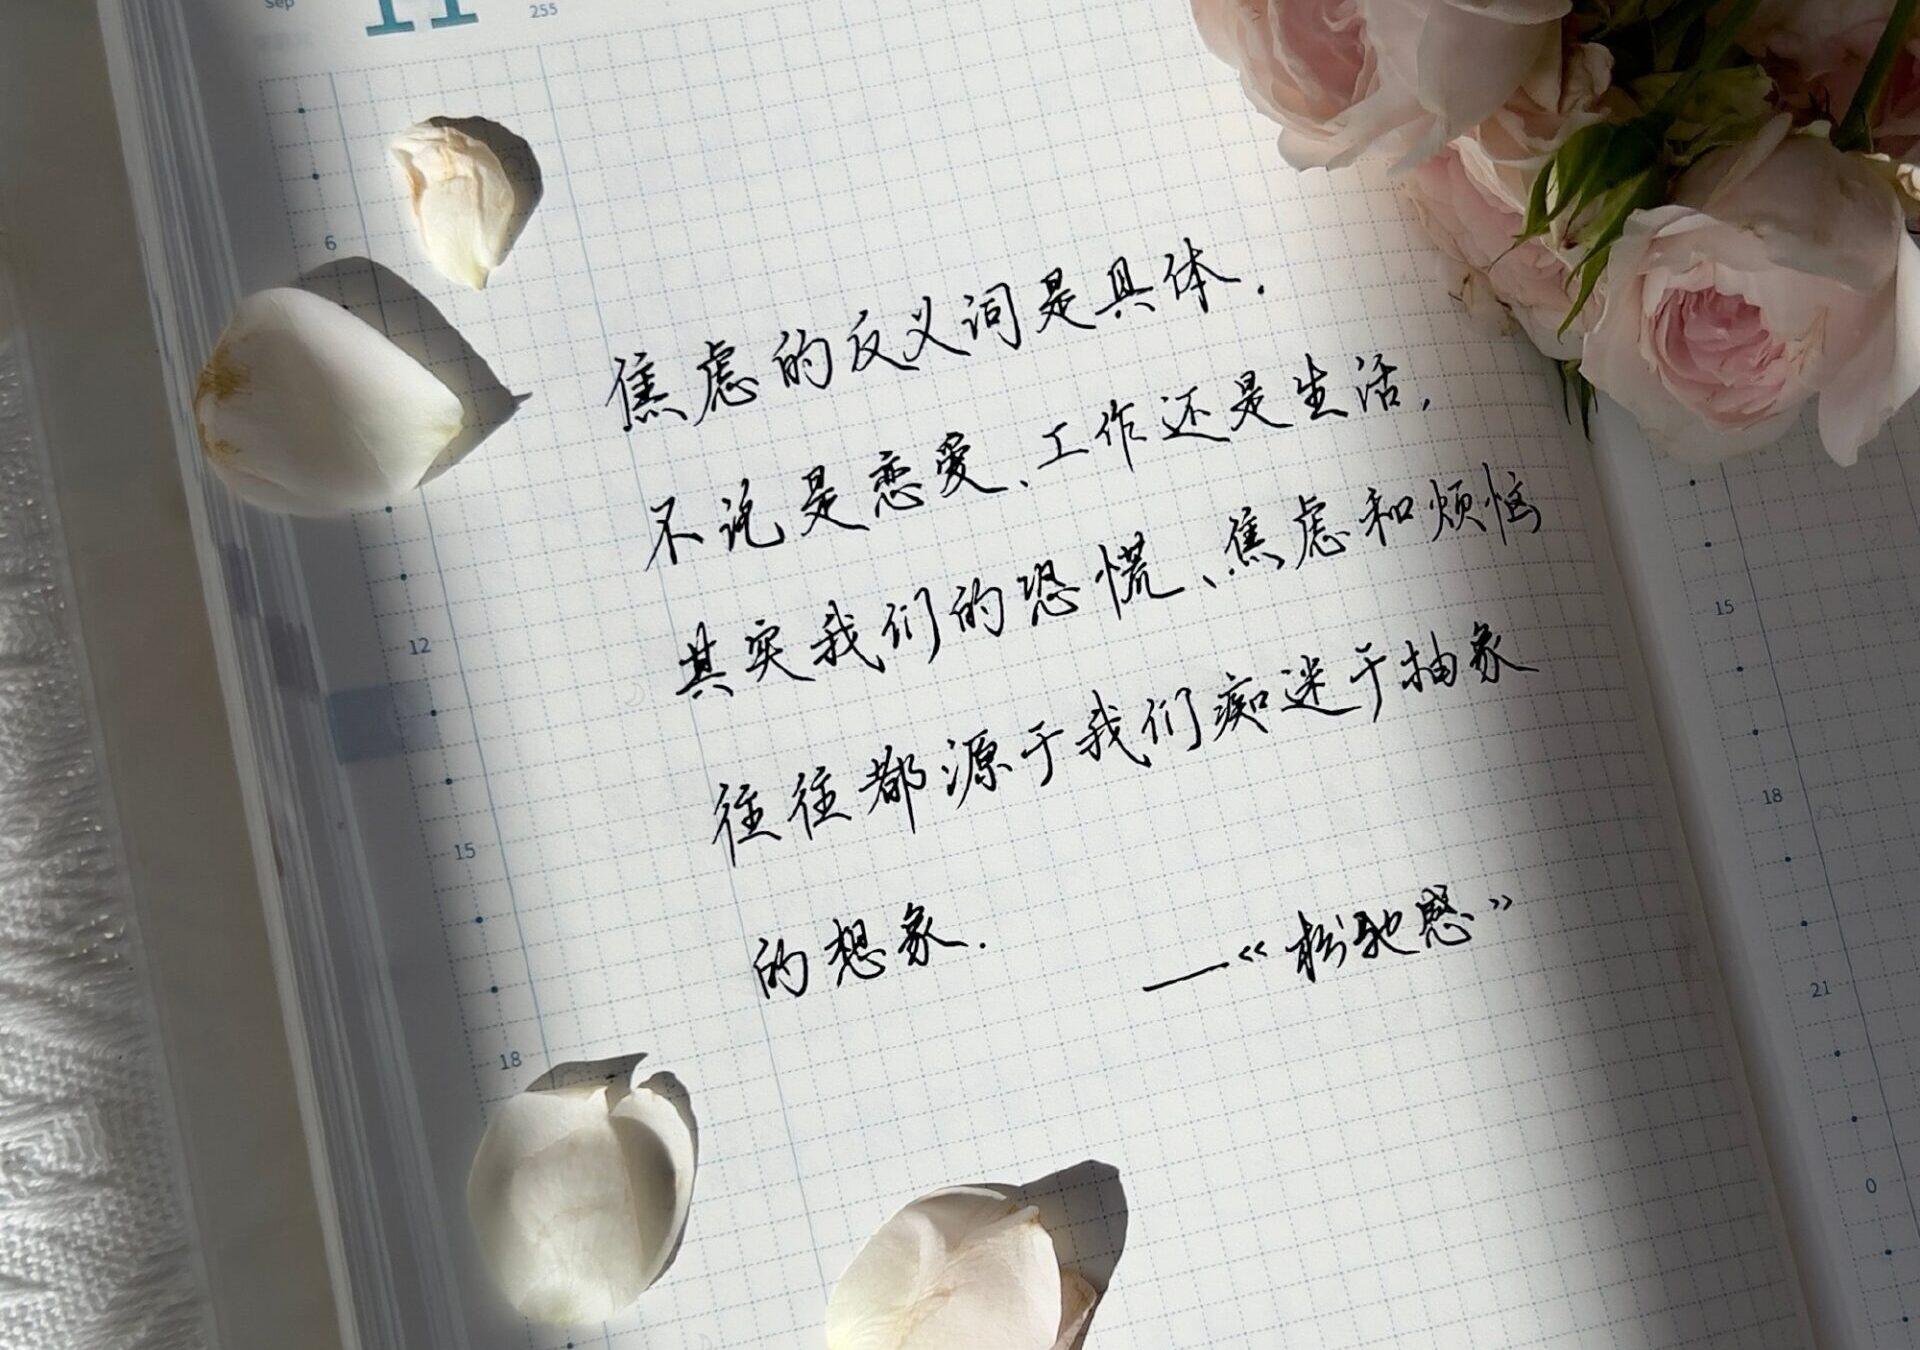 Sep
11
255
焦虑的反义词是具体.
不论是恋爱、工作还是生活,
其实我们的恐慌、焦虑和烦恼
往往都源于我们痴迷于抽象
的想象.
——《松驰感》
6
12
15
18
15
18
21
0